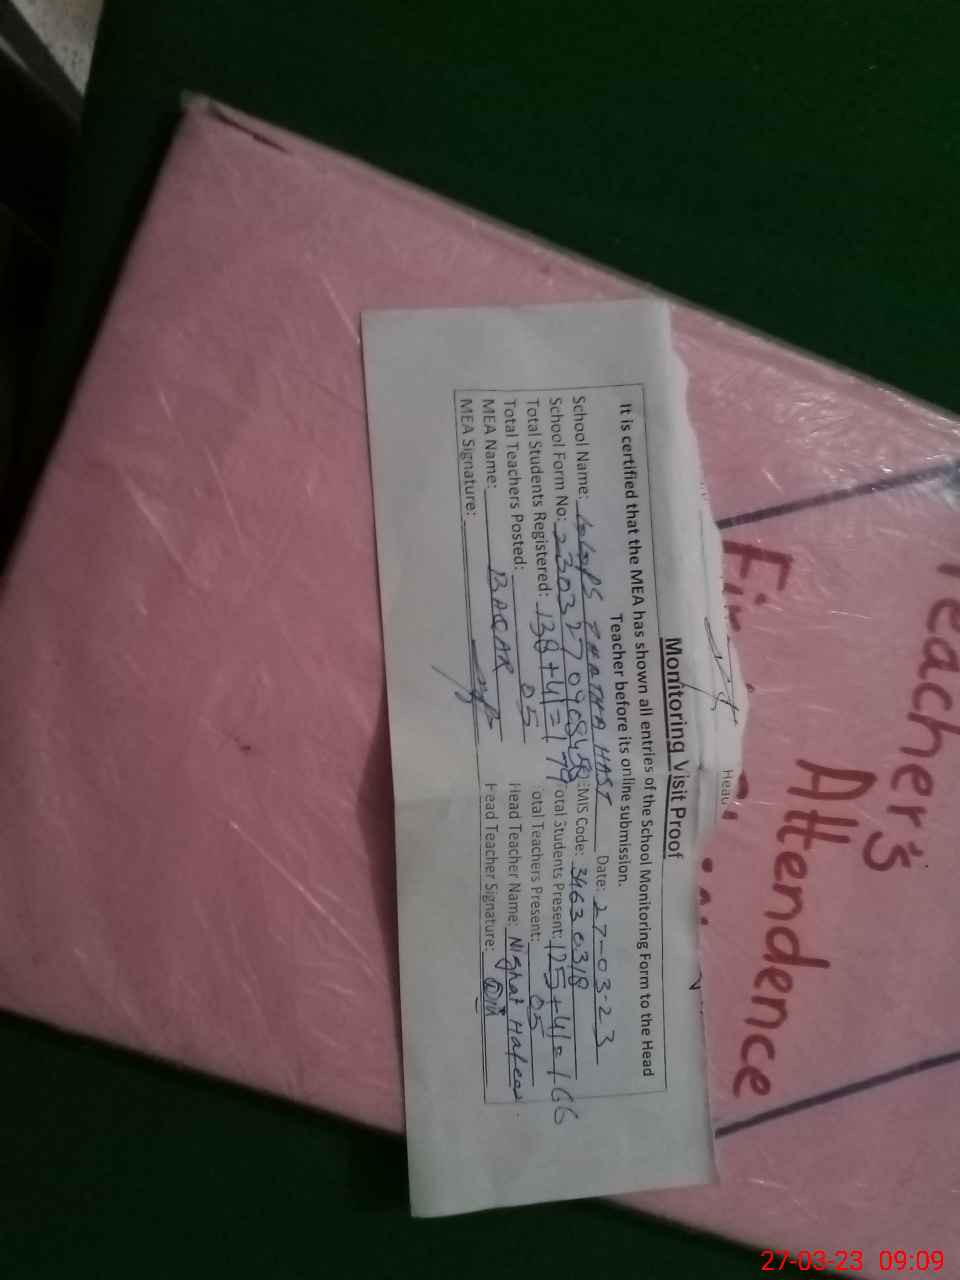 Teacher's
Attendence
Head
Monitoring Visit Proof
It is certified that the MEA has shown all entries of the School Monitoring Form to the Head
Teacher before its online submission.
School Name: HAST Date: 27-03-23
School Form No: EMIS Code: 34630318
Total Students Registered: 138+41=179 Total Students Present: 125+41=166
Total Teachers Posted: 05 Total Teachers Present: 05
MEA Name: BAQAR Head Teacher Name: Nighat Hafeez
MEA Signature: Head Teacher Signature:
27-03-23 09:09